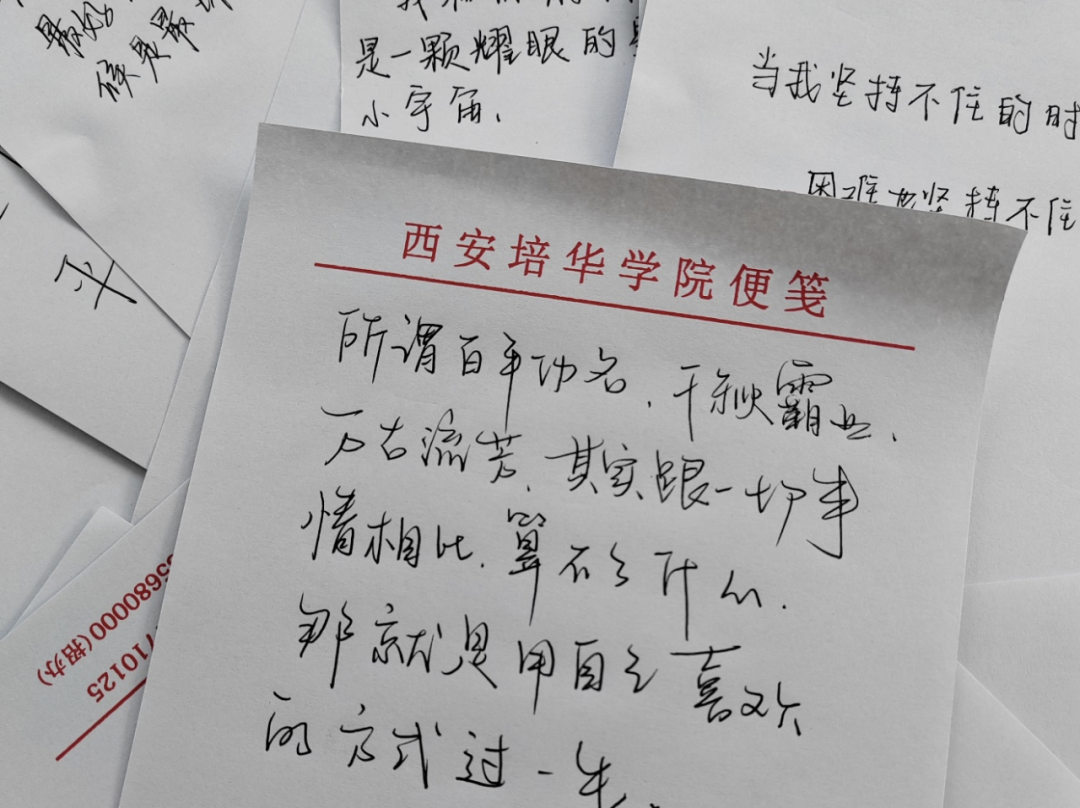 最好
候是最
是一颗耀眼的
小宇宙,
当我坚持不住的时
困难也坚持不住
西安培华学院便笺
所谓百年功名、千秋霸业、
万古流芳、其实跟一切事
情相比、算不了什么.
那就是用自己喜欢
的方式过一生.
5680000(招办)
710125